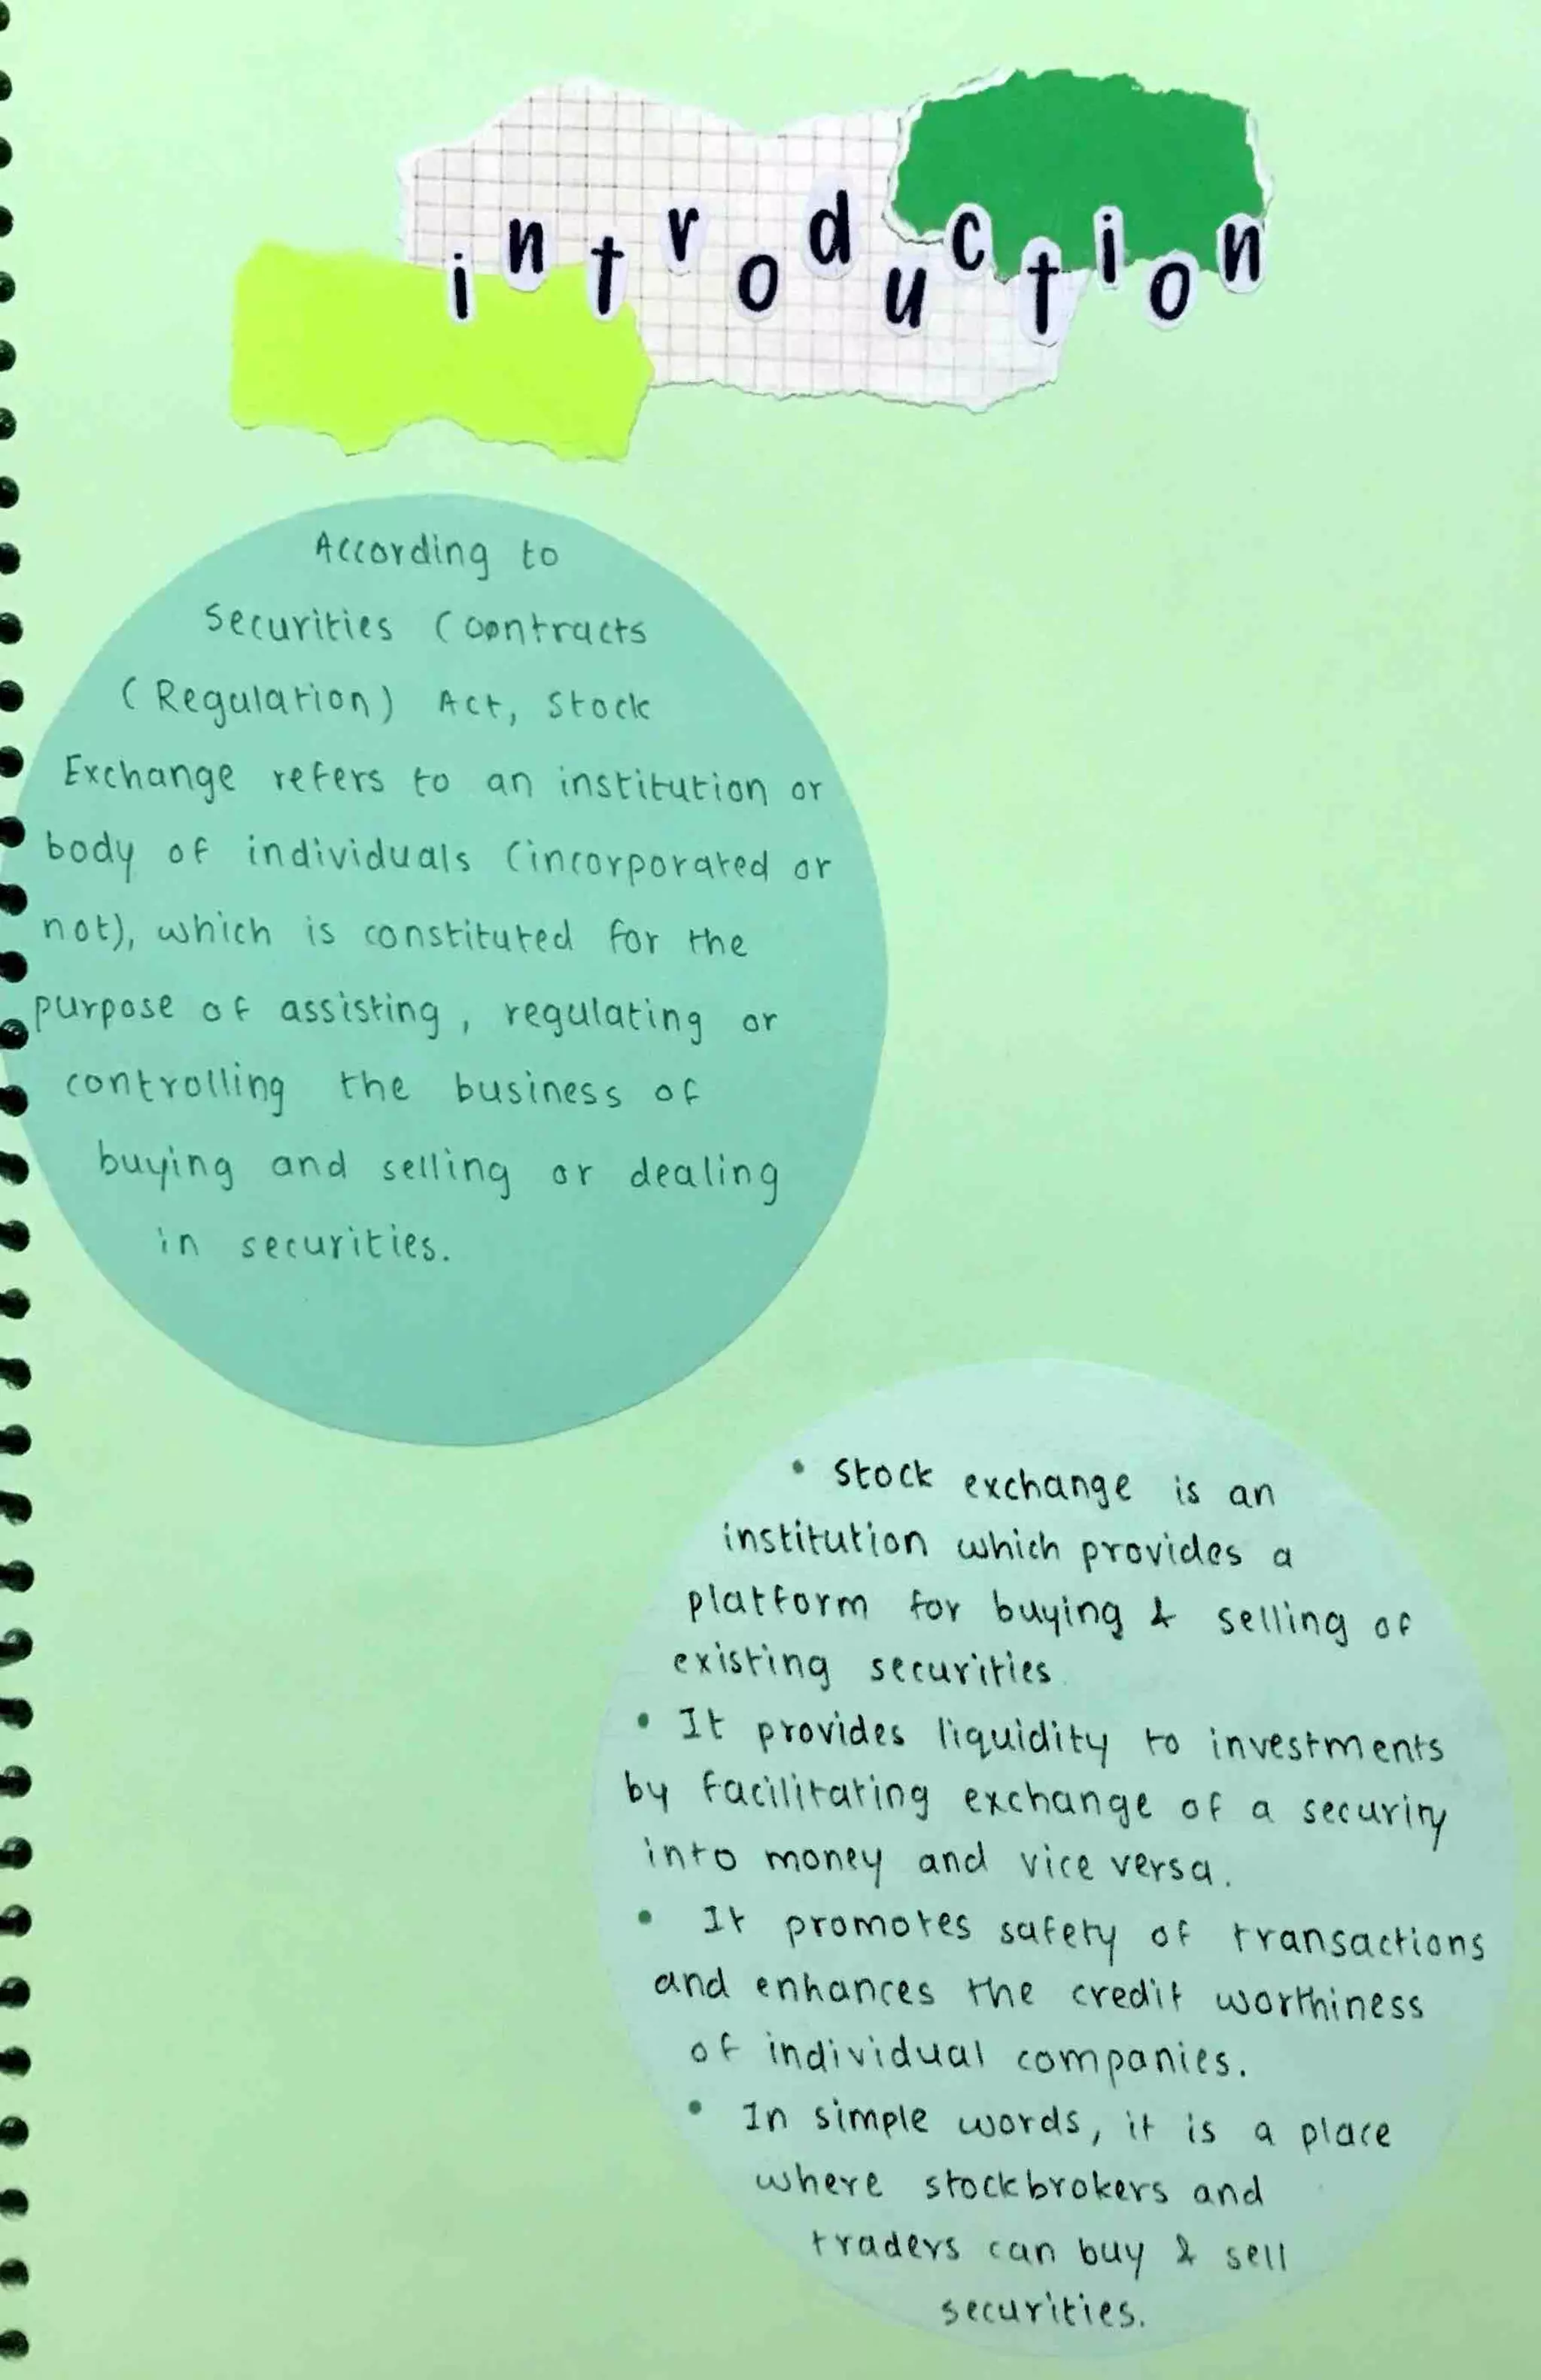 introduction
According to
Securities (Contracts
(Regulation) Act, Stock
Exchange refers to an institution or
body of individuals (incorporated or
not), which is constituted for the
purpose of assisting, regulating or
controlling the business of
buying and selling or dealing
in securities.
• Stock exchange is an
institution which provides a
platform for buying & selling of
existing securities
• It provides liquidity to investments
by facilitating exchange of a security
into money and vice versa.
• It promotes safety of transactions
and enhances the credit worthiness
of individual companies.
• In simple words, it is a place
where stockbrokers and
traders can buy & sell
securities.